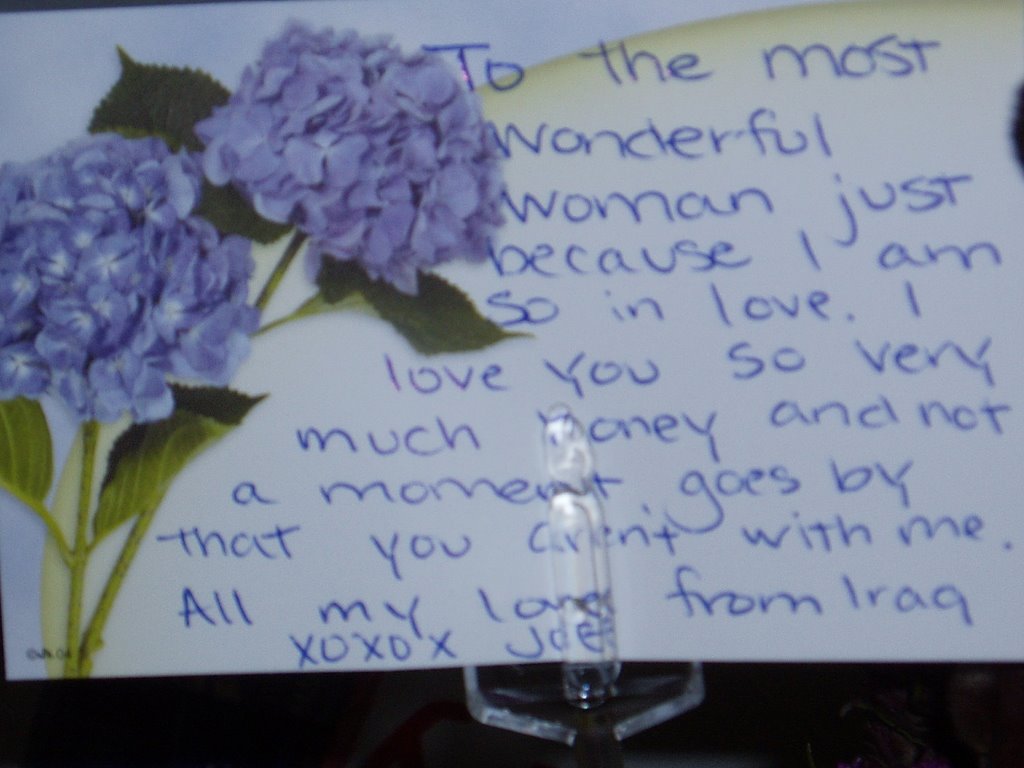 To the most
wonderful
woman just
because I am
so in love. I
love you so very
much honey and not
a moment goes by
that you aren't with me.
All my love from Iraq
xoxox Joe